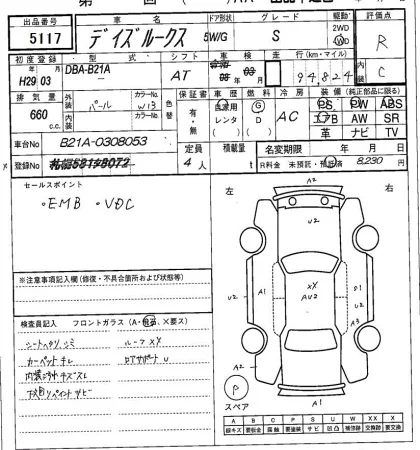 出品番号 車名 ドア形状 グレード 駆動 評価点
5117 デイズルークス 5W/G S 2WD WD R
初度登録 型式 シフト 車検 走行(km・マイル) 内装
H29年 03月 DBA-B21A AT 年 08 月 03 94,824 C
排気量 外装 カラーNo. 色替 保証書 車歴 燃料 冷房 装備(純正部品に限る)
660 c.c. パール W13 有・無 自家用 レンタ G D AC PS PW ABS
内装 カラーNo. エアB AW SR
革 ナビ TV
車台No B21A-0308053 定員 積載量 名変期限 年 月 日
登録No 4人 t R料金 未預託・預託済 8,230 円
セールスポイント
・EMB ・VDC
左 右
A2
U2
U2
A1
XX
AU2
A1
U2
A3
A2
※注意事項記入欄(修復・不具合箇所および状態等)
検査員記入 フロントガラス(A・飛石・X要ス)
シートヘタリ シミ ルーフXX
カーペットキレ リアサポートU
内装 キズ スレ
下回リペイントサビ
P
スペア
A B C P S U W X XX X
線キズ 要板金 腐蝕 要塗装 サビ 凹凸 補修跡 要交換 交換済